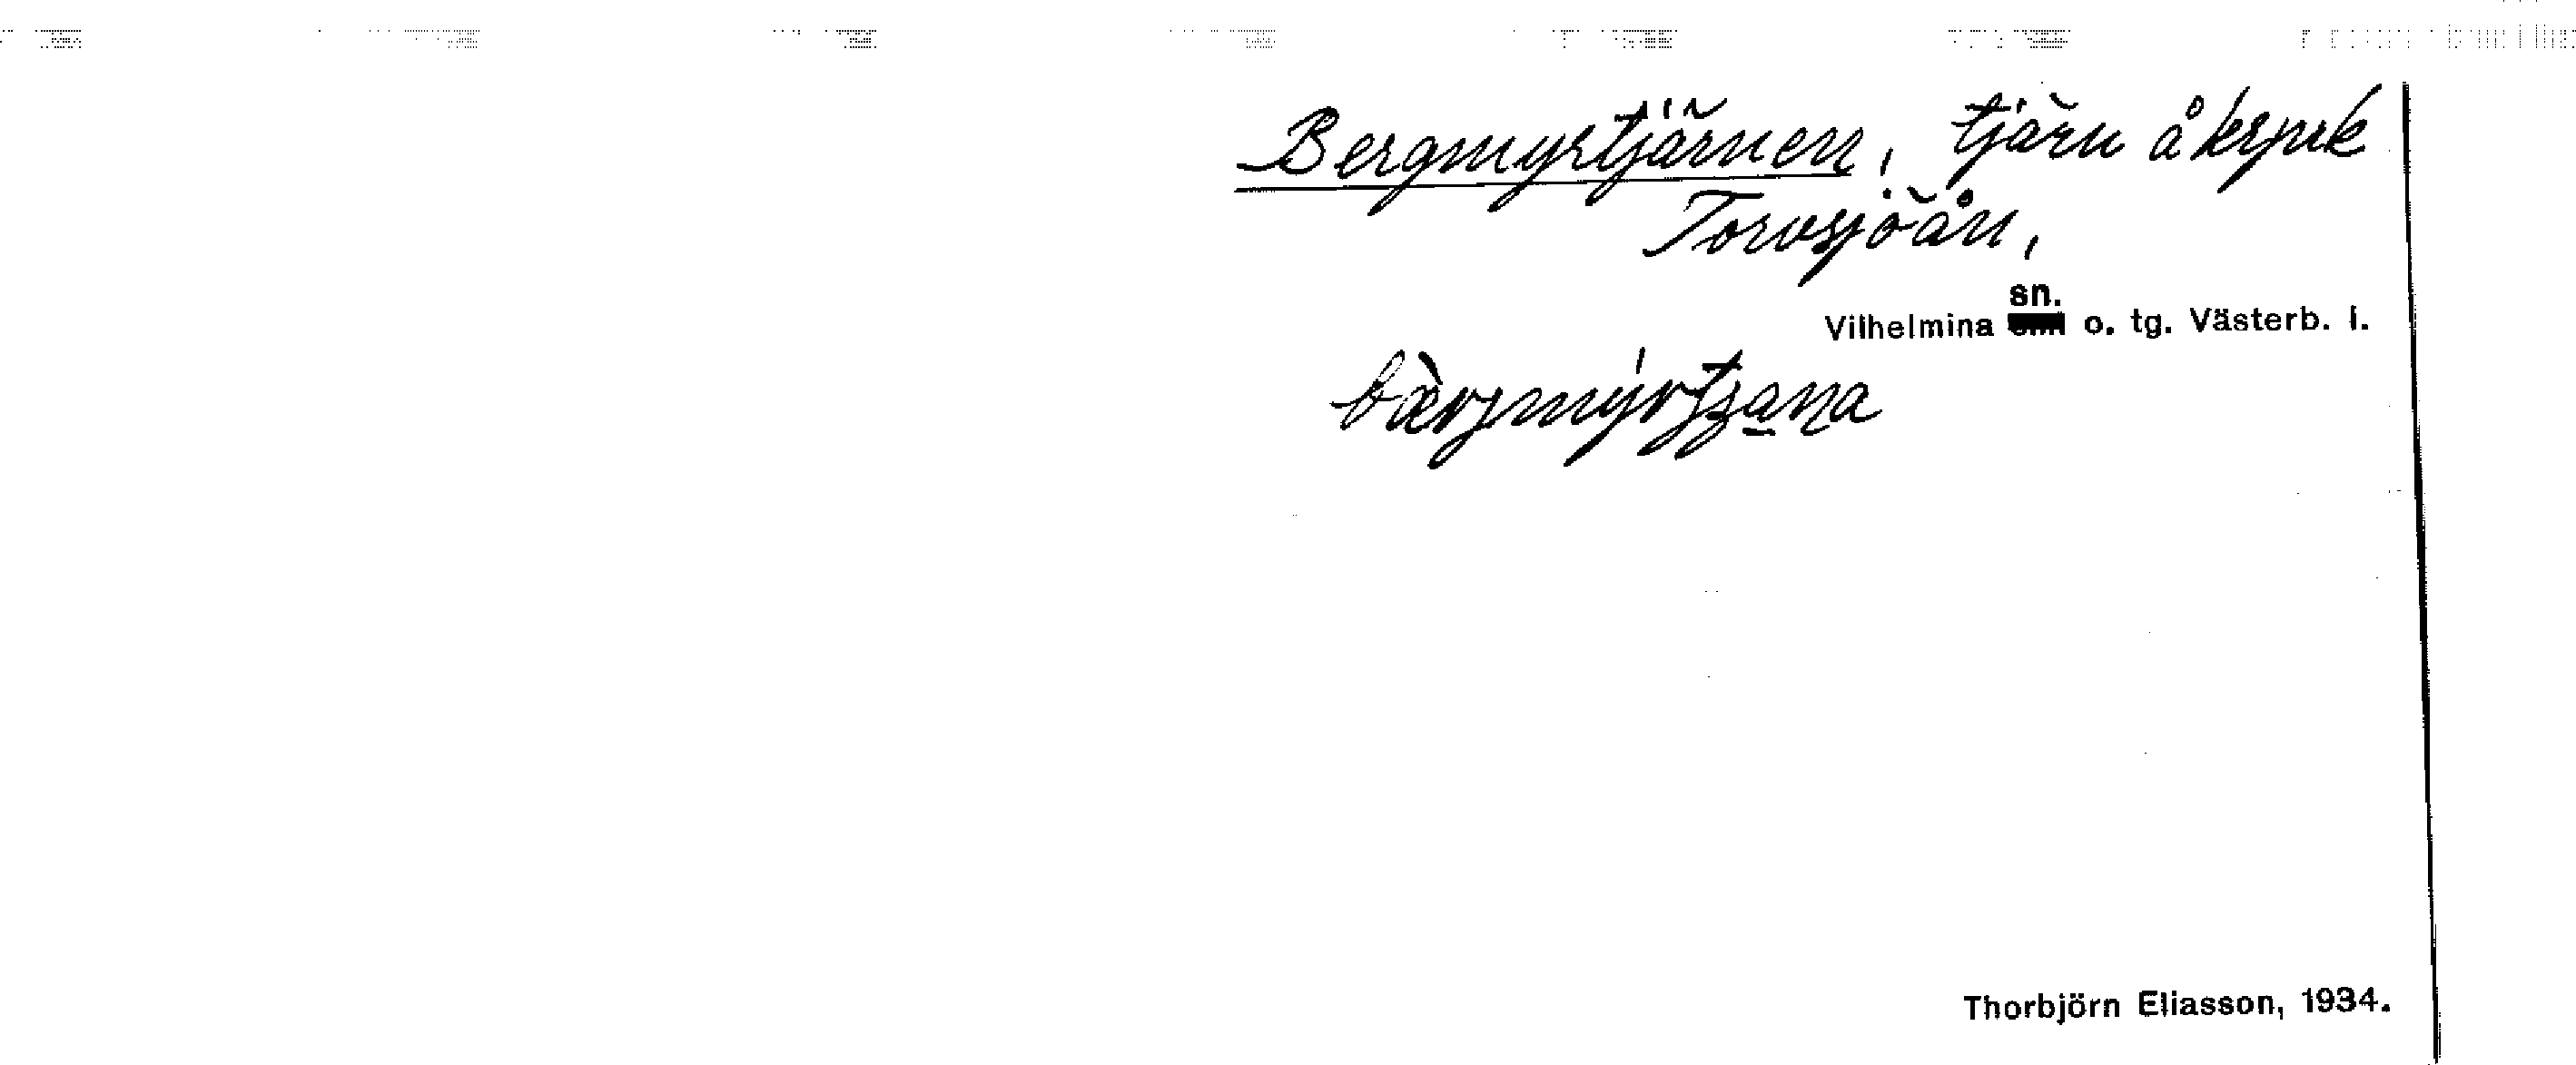 Bergmyrtjärnen, tjärn å krprk
Torvsjöån,
sn.
Vilhelmina o. tg. Västerb. l.
Thorbjörn Eliasson, 1934.